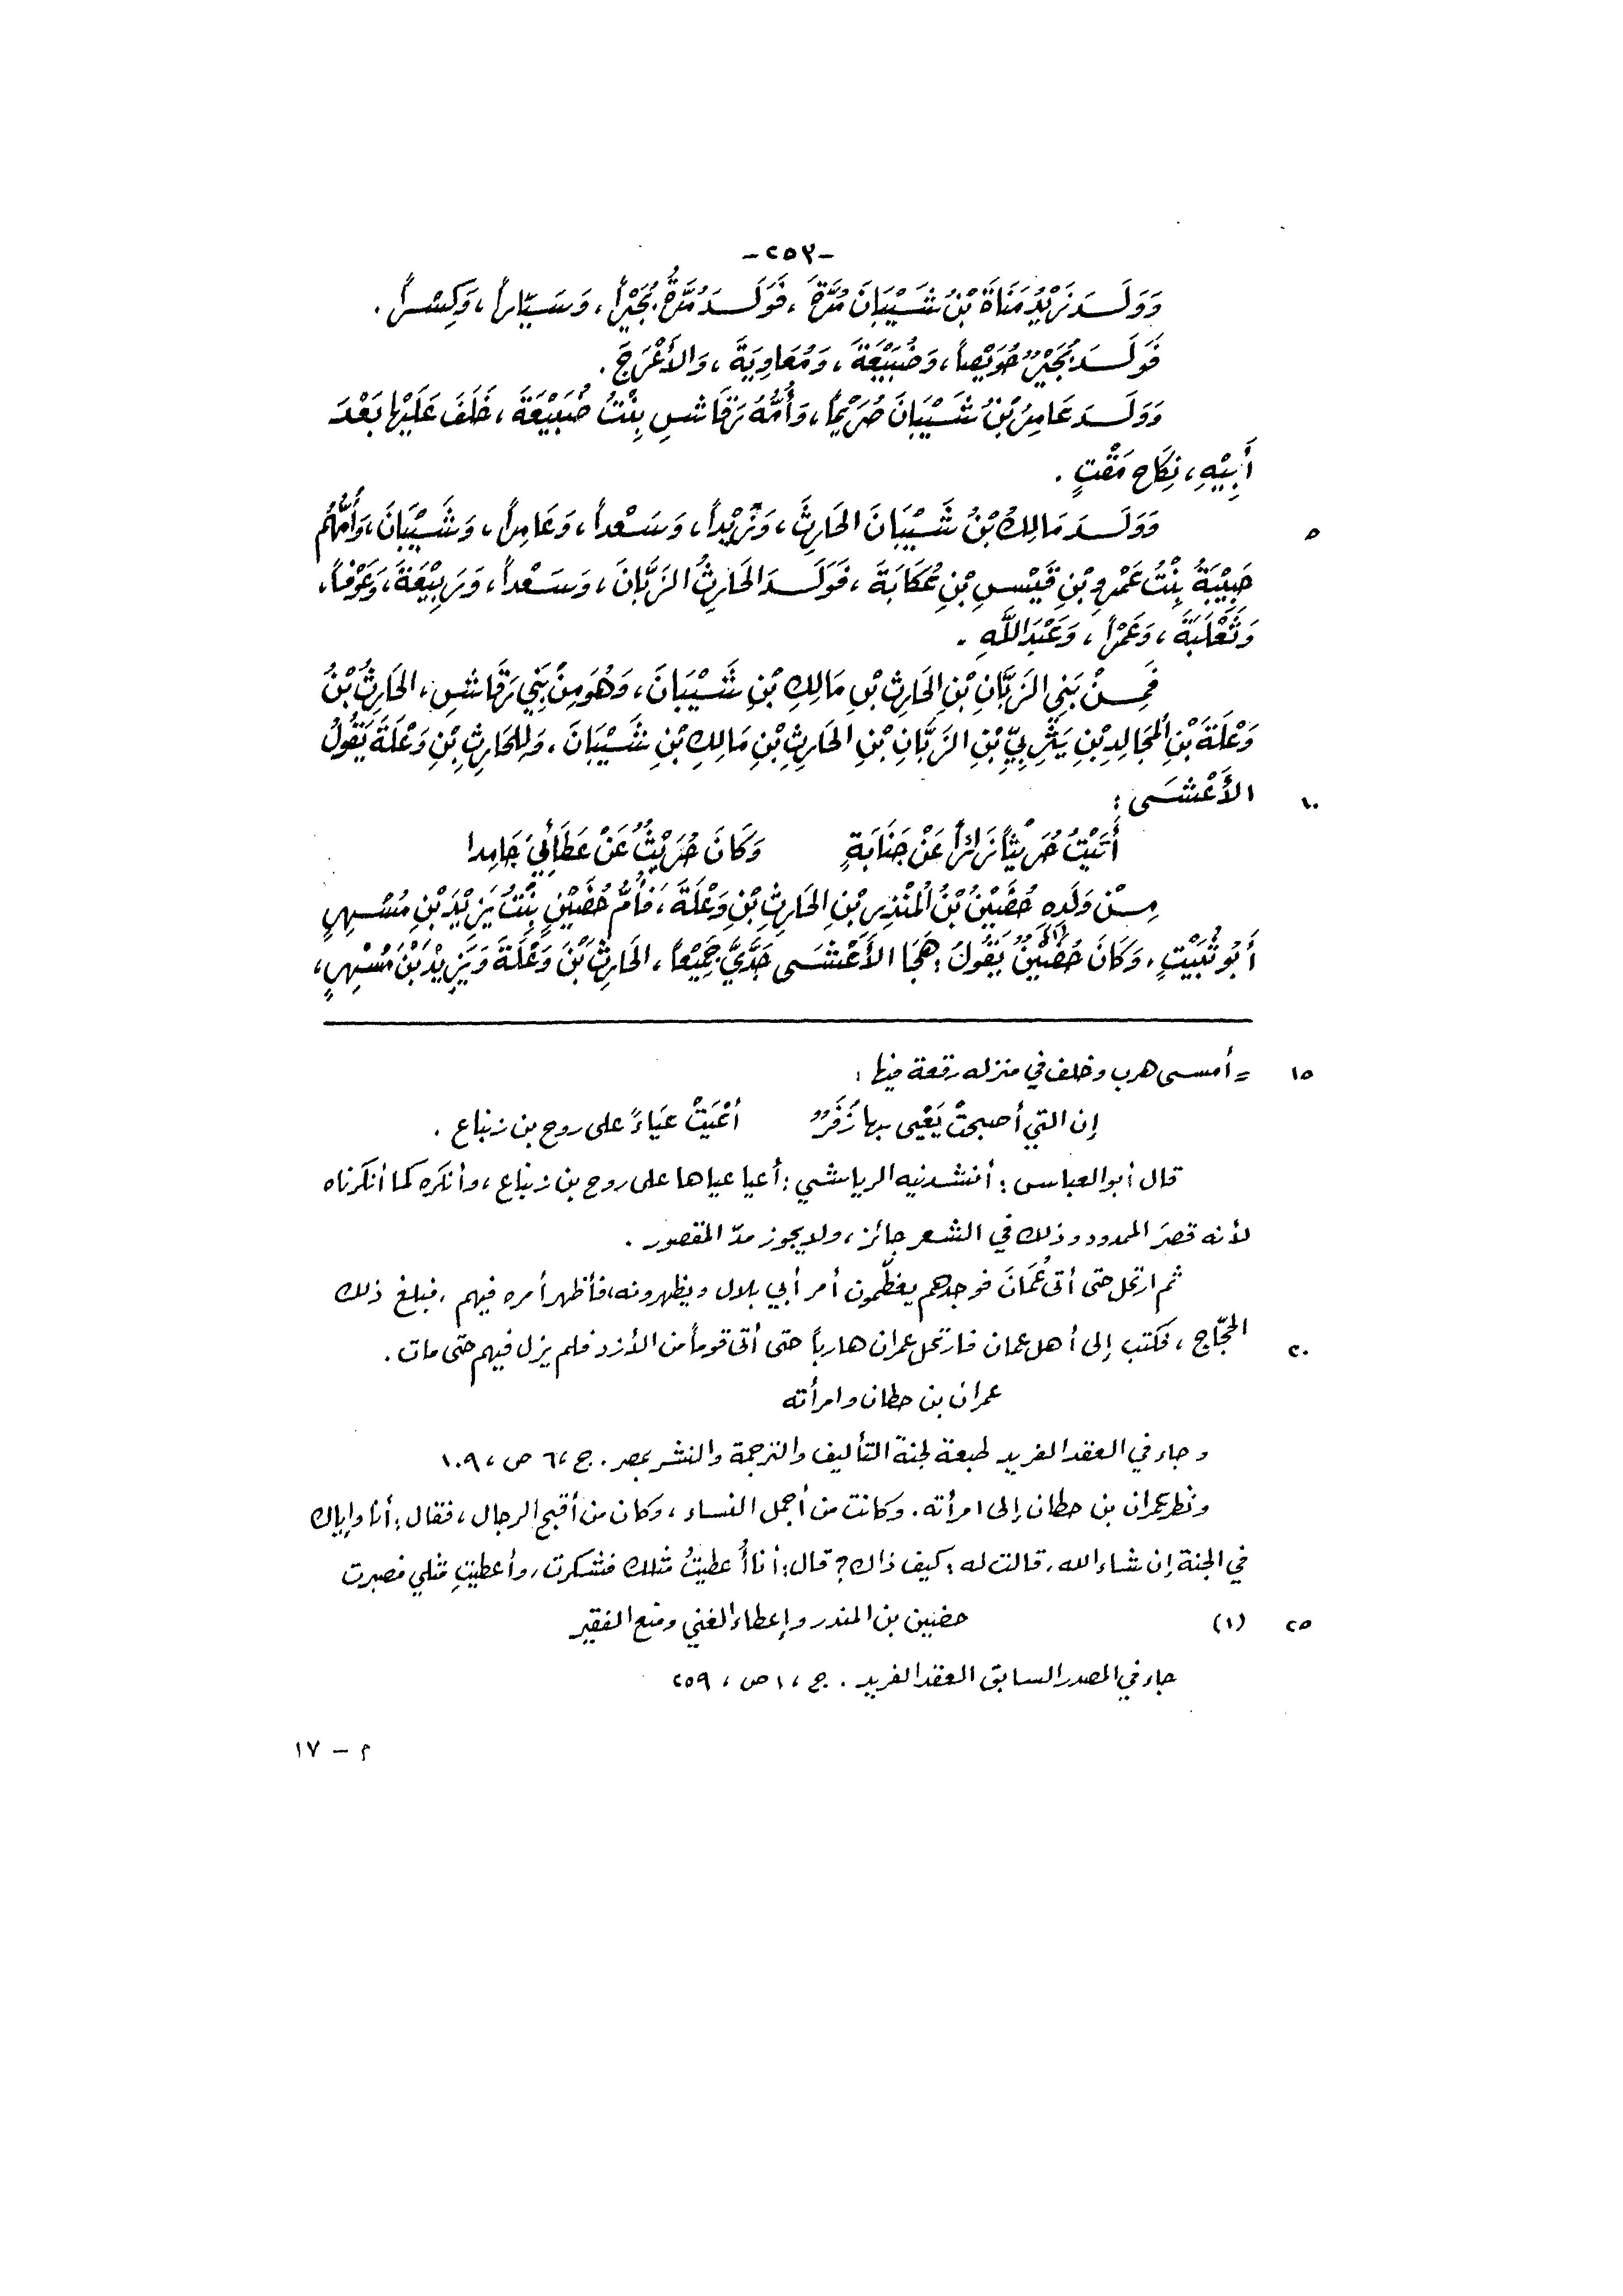 -٢٥٣-
وَوَلَـدَ زَيْدُ مَنَاةَ بْنُ شَيْبَانَ مُرَّةَ، فَوَلَـدَ مُرَّةُ بُجَيْراً، وَسَيَّاراً، وَكِسْراً.
فَوَلَـدَ بُجَيْرٌ حُوَيْصاً، وَضُبَيْعَةَ، وَمُعَاوِيَةَ، وَالأَعْرَجَ.
وَوَلَـدَ عَامِرُ بْنُ شَيْبَانَ صُرَيْماً، وَأُمُّهُ رَقَاشِ بِنْتُ ضُبَيْعَةَ، خَلَفَ عَلَيْهَا بَعْدَ
أَبِيْهِ، نِكَاحَ مَقْتٍ.
٥ وَوَلَـدَ مَالِكُ بْنُ شَيْبَانَ الحَارِثَ، وَزَيْداً، وَسَعْداً، وَعَامِراً، وَشَيْبَانَ، وَأُمُّهُم
حَبِيْبَةُ بِنْتُ عَمْرِو بْنِ قَيْسِ بْنِ عُكَابَةَ، فَوَلَـدَ الحَارِثُ الزَّبَّانَ، وَسَعْداً، وَرَبِيْعَةَ، وَعَوْفاً،
وَثَعْلَبَةَ، وَعَمْراً، وَعَبْدَ اللَّهِ.
فَمِـنْ بَنِي الزَّبَّانِ بْنِ الحَارِثِ بْنِ مَالِكِ بْنِ شَيْبَانَ، وَهُوَ مِنْ بَنِي رَقَاشِ، الحَارِثُ بْنُ
وَعْلَةَ بْنِ المُجَالِدِ بْنِ يَثْرِبِيِّ بْنِ الزَّبَّانِ بْنِ الحَارِثِ بْنِ مَالِكِ بْنِ شَيْبَانَ، وَلِلحَارِثِ بْنِ وَعْلَةَ يَقُولُ
١٠ الأَعْشَـى:
أَتَيْتُ حُرَيْثاً زَائِراً عَنْ جَنَابَةٍ وَكَانَ حُرَيْثٌ عَنْ عَطَائِيَ جَامِدا
مِـنْ وَلَدِهِ حُضَيْنُ بْنُ المُنْذِرِ بْنِ الحَارِثِ بْنِ وَعْلَةَ، فَأُمُّ حُضَيْنٍ بِنْتُ يَزِيْدَ بْنِ مُسْهِرٍ
أَبُو ثُبَيْتٍ. وَكَانَ حُضَيْنٌ (١) يَقُولُ: هَجَا الأَعْشَـى جَدَّيَّ جَمِيْعاً، الحَارِثَ بْنَ وَعْلَةَ وَيَزِيْدَ بْنَ مُسْهِرٍ،
١٥ = أمسى هرب وخلف في منزله رقعة فيها:
إن التي أصبحتْ يَعْيى بها زُفَرٌ أعْيَتْ عَيَاءً على روح بن زنباع.
قال أبو العباس: أنشدنيه الرياشي: أعيا عياها على روح بن زنباع، وأنكره كما أنكرناه
لأنه قصرَ الممدود وذلك في الشعر جائز، ولا يجوز مدّ المقصور.
ثم ارتحل حتى أتى عُمَانَ فوجدهم يعظّمون أمر أبي بلال ويظهرونه، فأظهر أمره فيهم، فبلغ ذلك
٢٠ الحجّاج، فكتب إلى أهل عمان فارتحل عمران هارباً حتى أتى قوماً من الأزد فلم يزل فيهم حتى مات.
عمران بن حطان وامرأته
وجاء في العقد الفريد طبعة لجنة التأليف والترجمة والنشر بمصر. ج، ٦ ص، ١٠٩
ونظر عمران بن حطان إلى امرأته. وكانت من أجمل النساء، وكان من أقبح الرجال، فقال: أنا وإياك
في الجنة إن شاء الله، قالت له: كيف ذاك؟ قال: أنا أُعطيتُ مثلك فشكرت، وأعطيتِ مثلي فصبرت
٢٥ (١) حضين بن المنذر وإعطاء الغني ومنع الفقير
جاء في المصدر السابق العقد الفريد. ج، ١ ص، ٢٥٩
م - ١٧